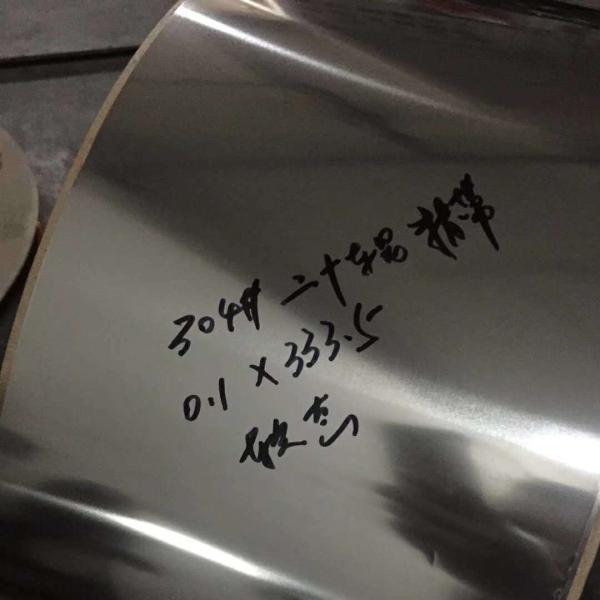 304# 二十辊 精带
0.1 × 333.5
硬态